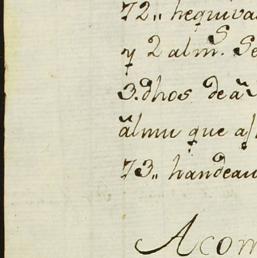 72,, hequiva
y 2 alm.s Se
3. dhos de a
almu que as
73,, handeau
Acom